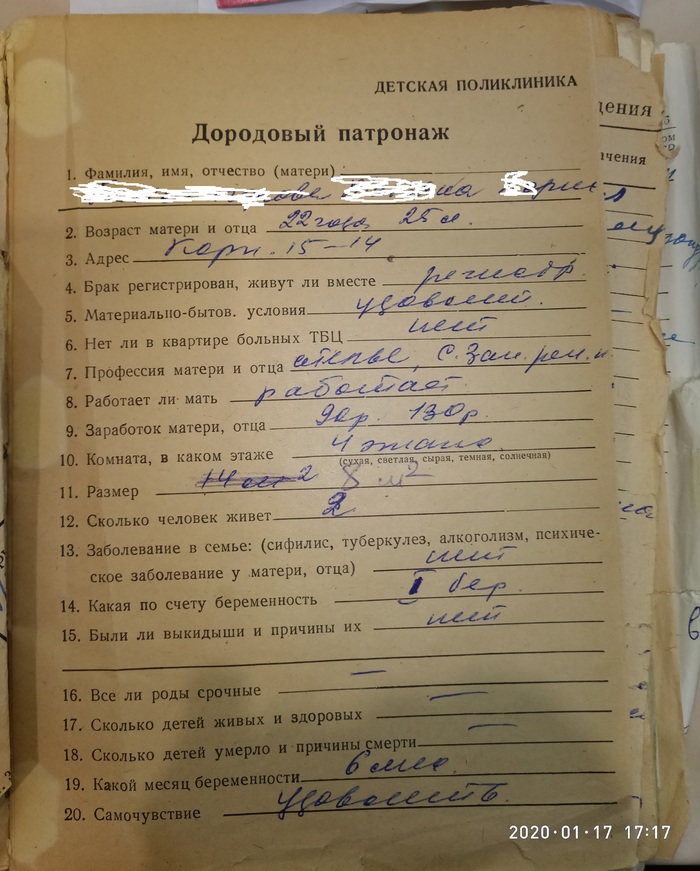 ДЕТСКАЯ ПОЛИКЛИНИКА
Дородовый патронаж
1. Фамилия, имя, отчество (матери)
2. Возраст матери и отца 22 года 25 л.
3. Адрес Карп. 15-14
4. Брак регистрирован, живут ли вместе регистр.
5. Материально-бытов. условия удовлет.
6. Нет ли в квартире больных ТБЦ нет
7. Профессия матери и отца
8. Работает ли мать работает
9. Заработок матери, отца 90р. 130р.
10. Комната, в каком этаже 4 этаж
(сухая, светлая, сырая, темная, солнечная)
11. Размер 8 м2
12. Сколько человек живет 2
13. Заболевание в семье: (сифилис, туберкулез, алкоголизм, психиче-
ское заболевание у матери, отца) нет
14. Какая по счету беременность I бер.
15. Были ли выкидыши и причины их нет
16. Все ли роды срочные —
17. Сколько детей живых и здоровых —
18. Сколько детей умерло и причины смерти —
19. Какой месяц беременности 6 мес.
20. Самочувствие удовлетв.
дения
ачения
2020·01·17 17:17